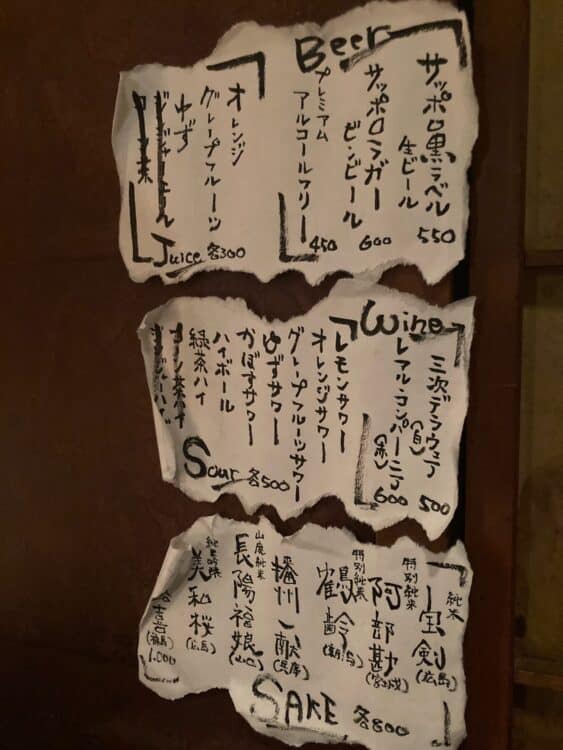 Beer
サッポロ黒ラベル
生ビール 550
サッポロラガー
ビンビール 600
プレミアム
アルコールフリー 450
オレンジ
グレープフルーツ
ゆず
ジンジャーエール
Juice 各300
Wine
三次デラウェア
(白) 500
レアル・コンパーニア
(赤) 600
レモンサワー
オレンジサワー
グレープフルーツサワー
ゆずサワー
かぼすサワー
ハイボール
緑茶ハイ
ウーロン茶ハイ
ジンジャーハイ
Sour 各500
純米
宝剣(広島)
特別純米
阿部勘(宮城)
特別純米
鶴齢(新潟)
播州一献(兵庫)
山廃純米
長陽福娘(山口)
純米吟醸
美和桜(広島)
(福島) 1,000
SAKE 各800